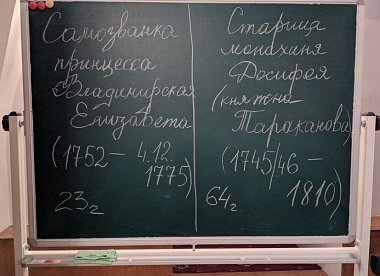 Самозванка
принцесса
Владимирская
Елизавета
(1752 – 4.12.
1775)
23г
Старица
монахиня
Досифея
(княжна
Тараканова)
(1745/46 –
1810)
64г.